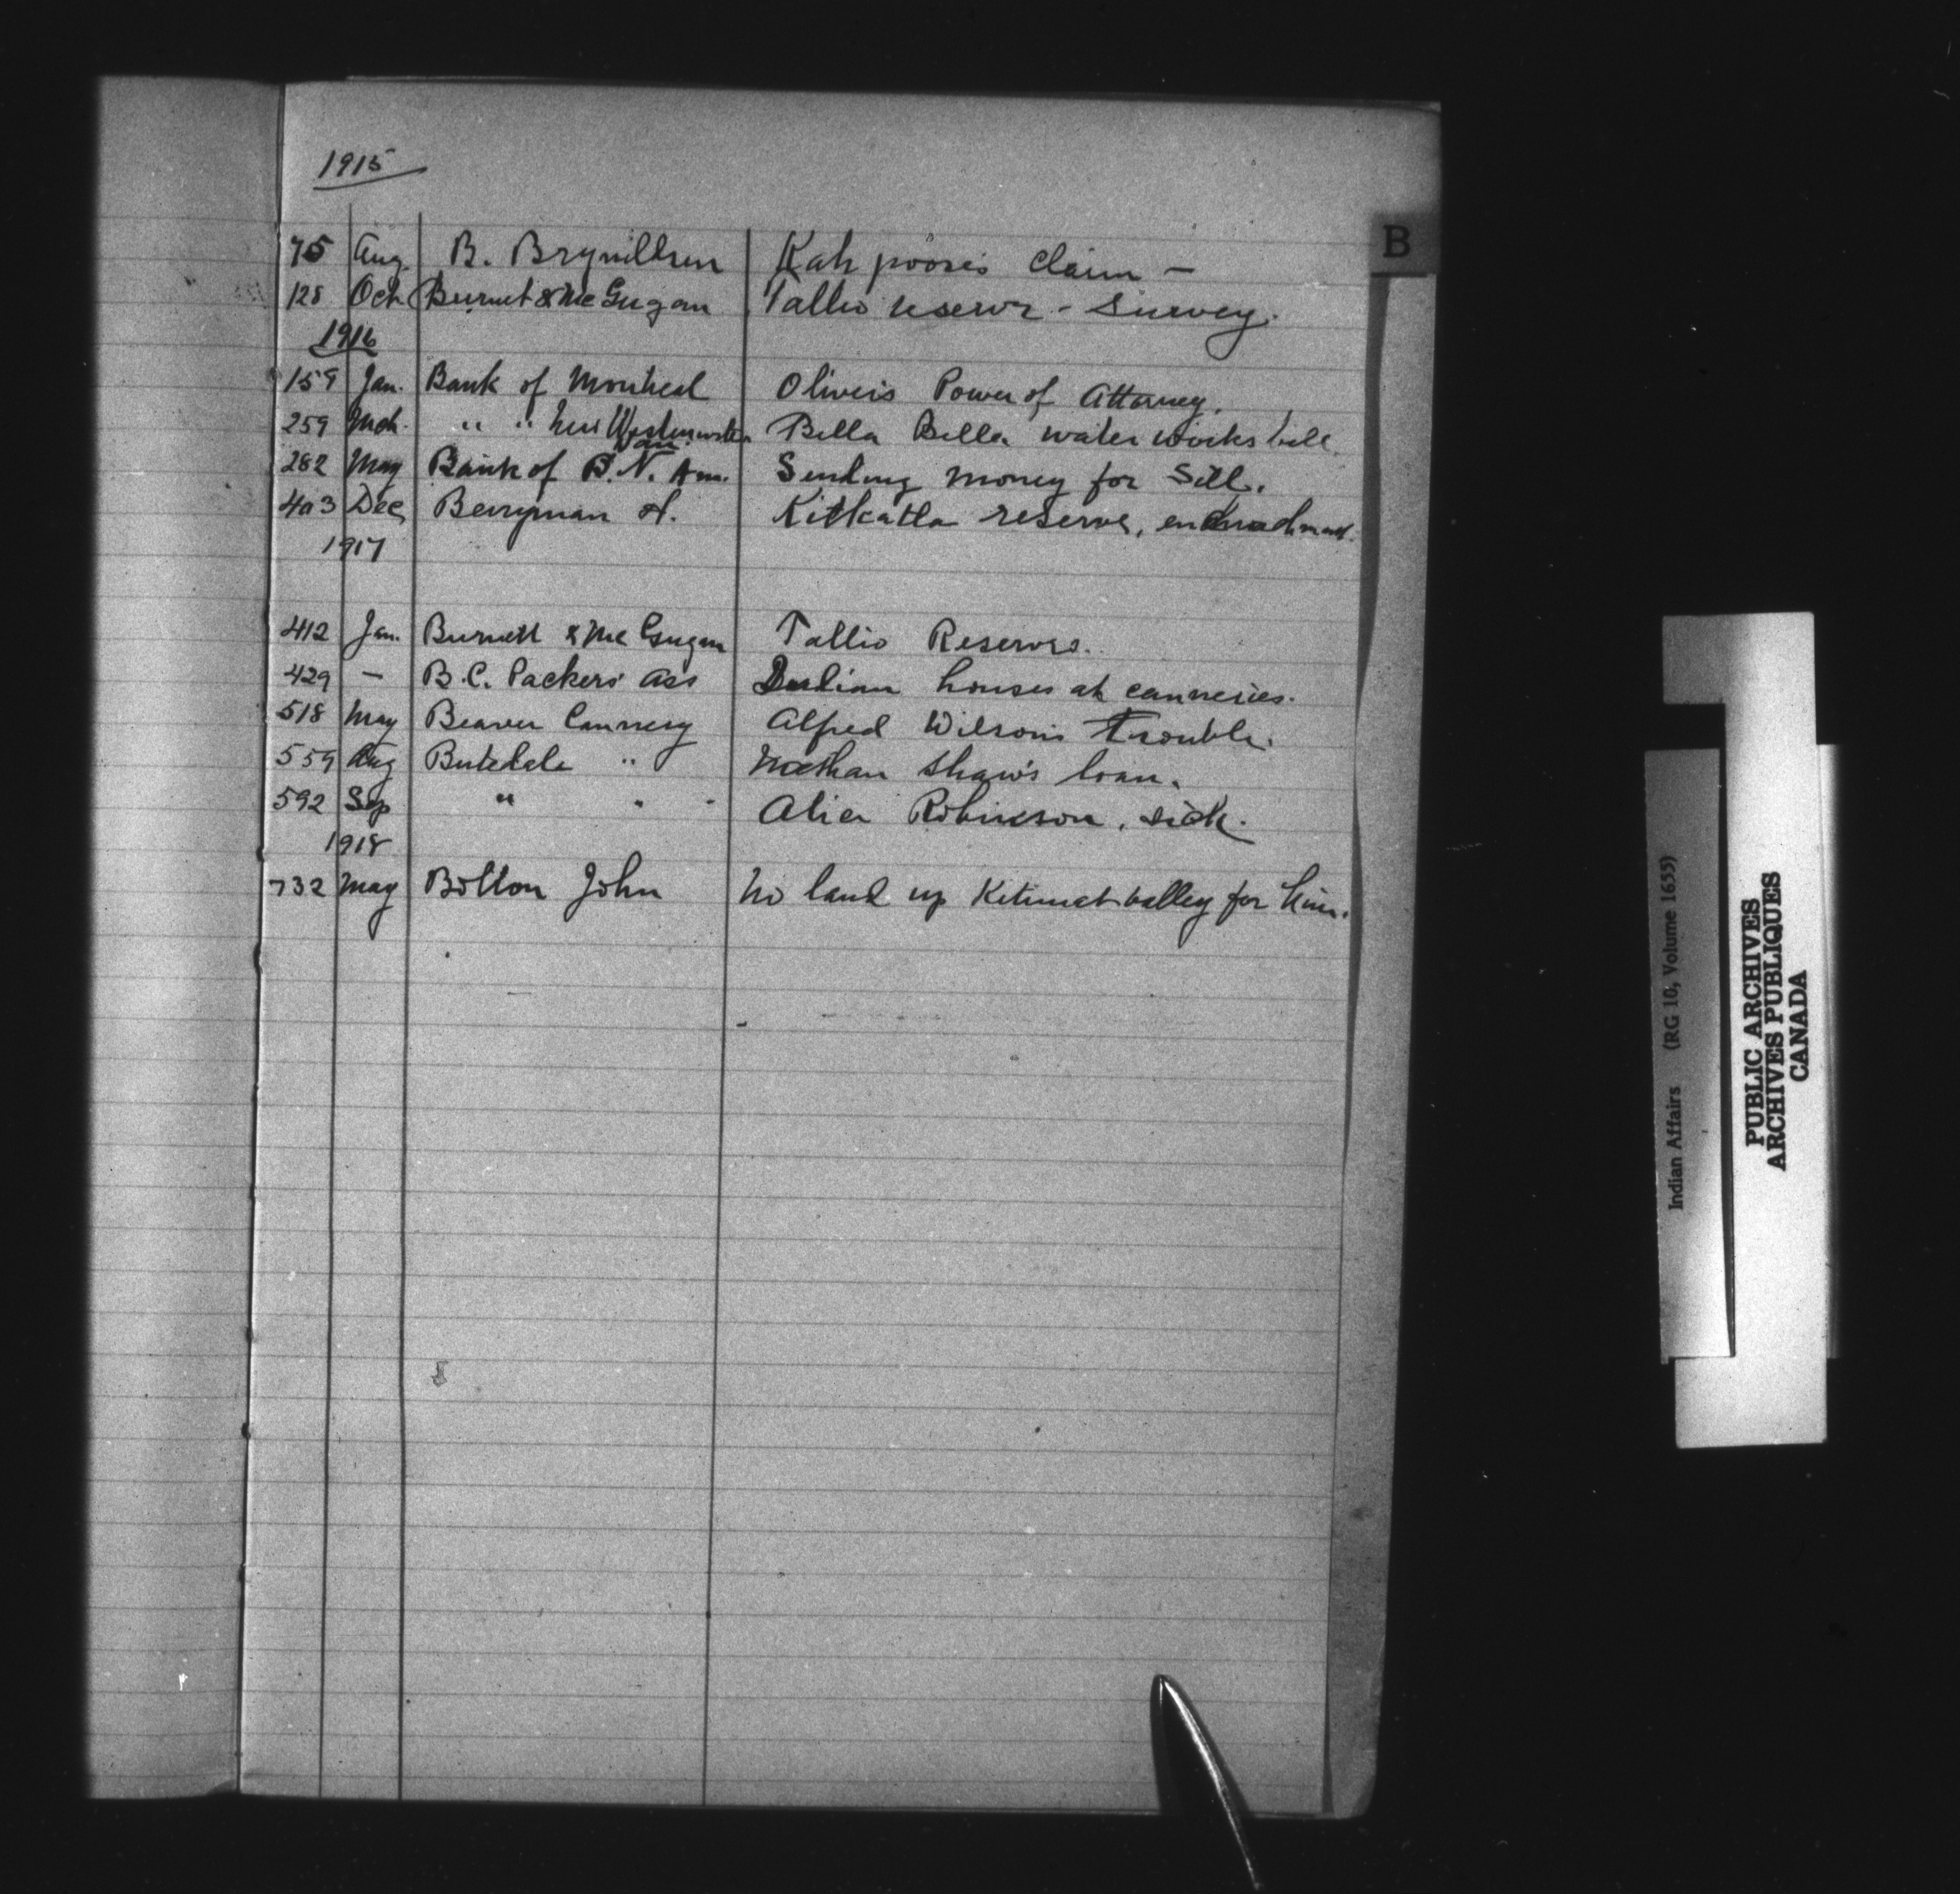 1915
B
75 Aug. B. Brynildsen Kah poose's claim —
128 Oct Burnet & McGugan Tallio reserve - Survey.
1916
159 Jan. Bank of Montreal Oliver's Power of Attorney.
259 Mch. " " New Westminster Bella Bella water works bill.
Van
282 May Bank of B.N. Am. Sending money for Sill.
403 Dec Berryman A. Kitkatla reserve, encroachment.
1917
412 Jan. Burnett & McGugan Tallio Reserves.
429 — B.C. Packers' Ass Indian houses at canneries.
518 May Beaver Cannery Alfred Wilson's Trouble.
559 Aug Butedale " Nathan Shaw's loan.
592 Sep " " Alice Robinson, sick.
1918
732 May Bolton John No land up Kitimat valley for him.
Indian Affairs (RG 10, Volume 1655)
PUBLIC ARCHIVES
ARCHIVES PUBLIQUES
CANADA